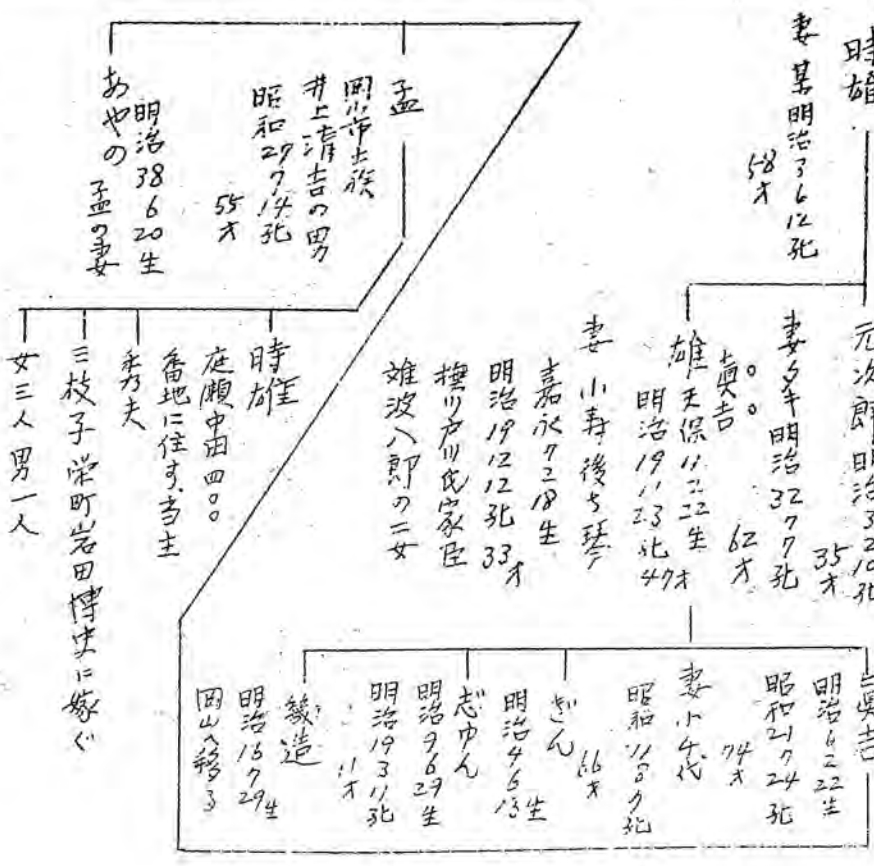 時雄
妻 某 明治3 6 12 死
58才
元次郎 明治3 2 10 死
35才
妻タキ 明治32 7 7 死
62才
眞吉
雄 天保11 2 22生
明治19 11 23死 47才
妻 小寿 後ち琴
嘉永7 2 18生
明治19 12 12死 33才
撫川戸川氏家臣
難波八郎の二女
眞吉
明治6 2 22生
昭和21 7 24死
74才
妻 小千代
昭和11 8 7死
66才
ぎん
明治4 6 13生
志ゆん
明治9 6 29生
明治19 3 11死
11才
幾造
明治15 7 29生
岡山へ移る
孟
岡山市士族
井上清吉の男
昭和27 7 14死
55才
明治38 6 20生
あやの 孟の妻
時雄
庭瀬中田四〇〇
番地に住す、当主
秀夫
三枝子 栄町岩田博史に嫁ぐ
女三人 男一人